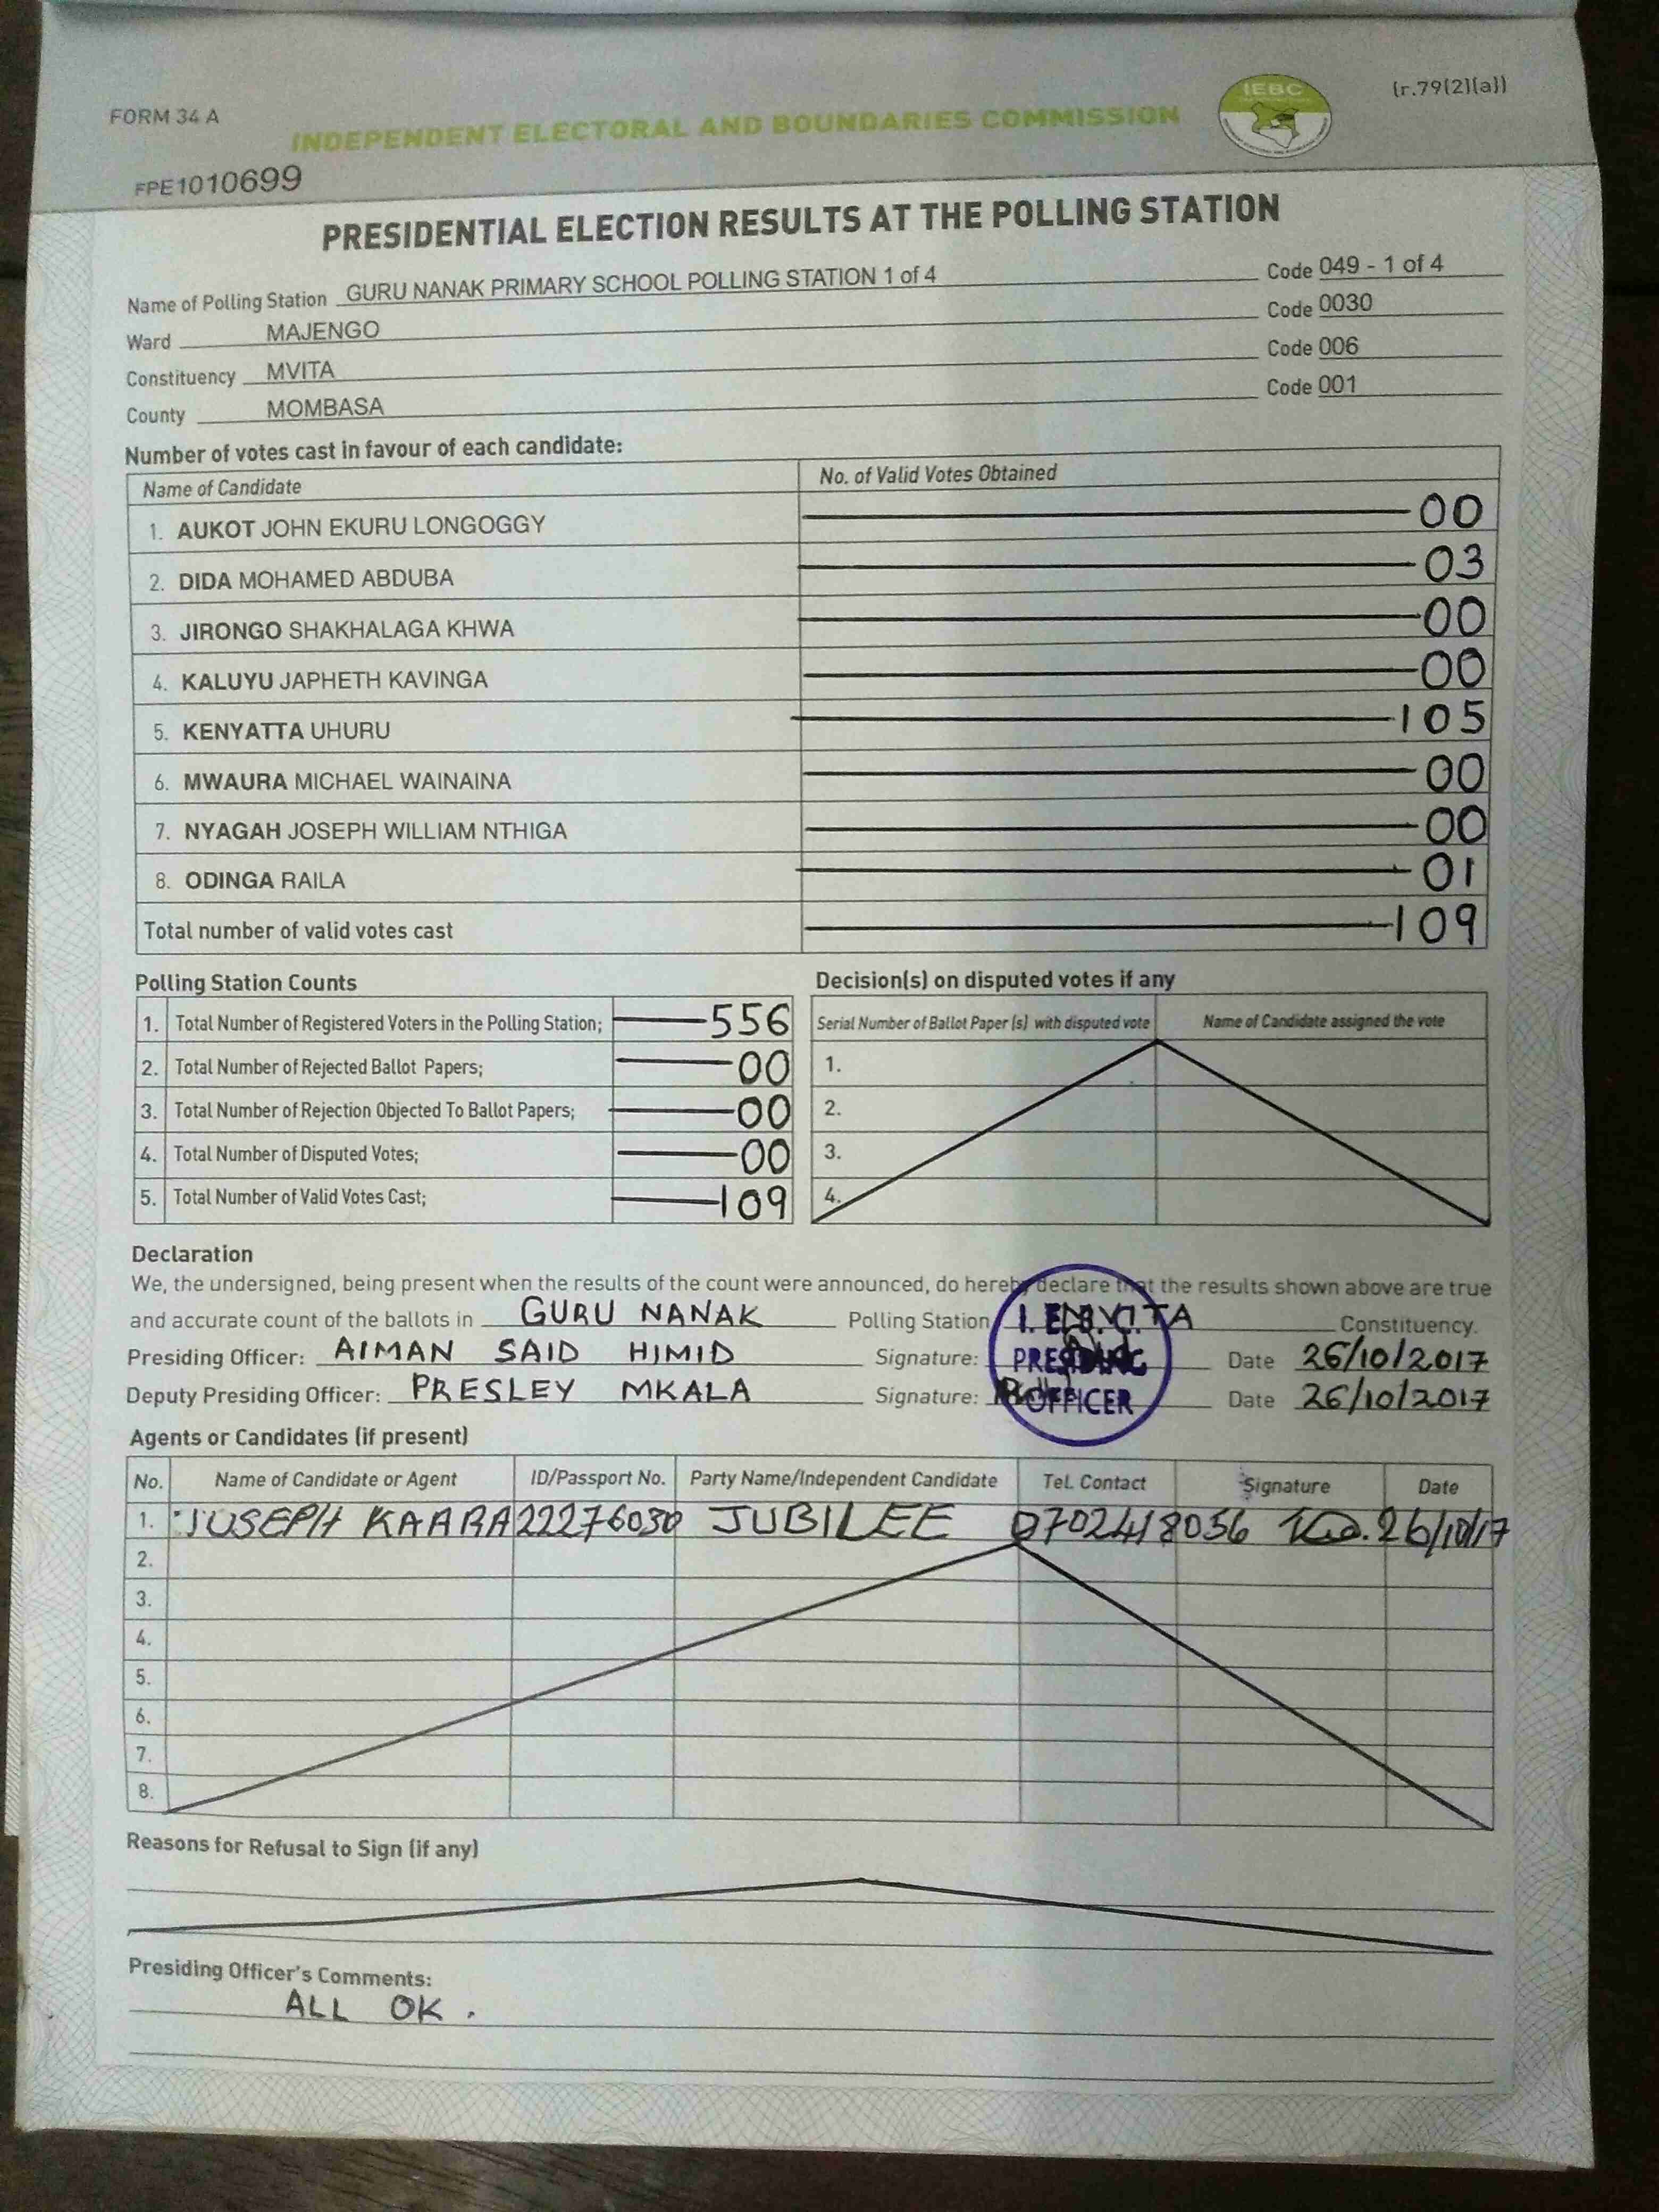 FORM 34 A
INDEPENDENT ELECTORAL AND BOUNDARIES COMMISSION
IEBC
(r.79(2)(a))
FPE1010699
PRESIDENTIAL ELECTION RESULTS AT THE POLLING STATION
Name of Polling Station GURU NANAK PRIMARY SCHOOL POLLING STATION 1 of 4 Code 049 - 1 of 4
Ward MAJENGO Code 0030
Constituency MVITA Code 006
County MOMBASA Code 001
Number of votes cast in favour of each candidate:
Name of Candidate No. of Valid Votes Obtained
1. AUKOT JOHN EKURU LONGOGGY 00
2. DIDA MOHAMED ABDUBA 03
3. JIRONGO SHAKHALAGA KHWA 00
4. KALUYU JAPHETH KAVINGA 00
5. KENYATTA UHURU 105
6. MWAURA MICHAEL WAINAINA 00
7. NYAGAH JOSEPH WILLIAM NTHIGA 00
8. ODINGA RAILA 01
Total number of valid votes cast 109
Polling Station Counts
1. Total Number of Registered Voters in the Polling Station; 556
2. Total Number of Rejected Ballot Papers; 00
3. Total Number of Rejection Objected To Ballot Papers; 00
4. Total Number of Disputed Votes; 00
5. Total Number of Valid Votes Cast; 109
Decision(s) on disputed votes if any
Serial Number of Ballot Paper (s) with disputed vote Name of Candidate assigned the vote
1.
2.
3.
4.
Declaration
We, the undersigned, being present when the results of the count were announced, do hereby declare that the results shown above are true
and accurate count of the ballots in GURU NANAK Polling Station MVITA Constituency.
Presiding Officer: AIMAN SAID HIMID Signature: Date 26/10/2017
Deputy Presiding Officer: PRESLEY MKALA Signature: Date 26/10/2017
I.E.B.C.
PRESIDING
OFFICER
Agents or Candidates (if present)
No. Name of Candidate or Agent ID/Passport No. Party Name/Independent Candidate Tel. Contact Signature Date
1. JOSEPH KAARA 22276030 JUBILEE 0702418056 26/10/17
2.
3.
4.
5.
6.
7.
8.
Reasons for Refusal to Sign (if any)
Presiding Officer's Comments:
ALL OK.